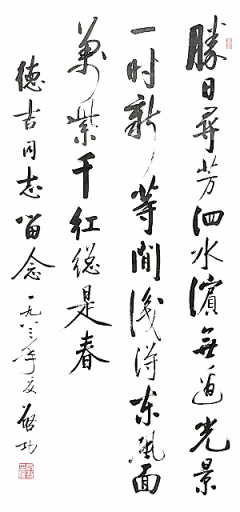 勝日尋芳泗水濱無邊光景
一时新等閒識得東風面
萬紫千紅總是春
德吉同志留念 一九八三年夏 啓功